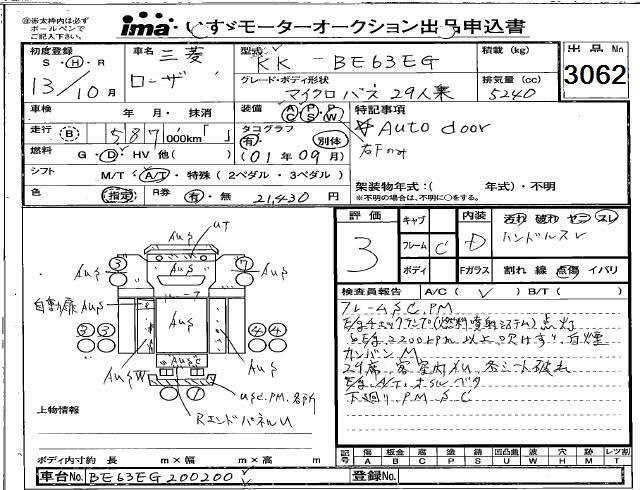 ※太枠内は必ず
ボールペンで
ご記入下さい。
ima いすゞモーターオークション出品申込書
初度登録
S・H・R
13/10月
車名
三菱
ローザ
型式
KK-BE63EG
積載(kg)
出品No
3062
グレード・ボディ形状
マイクロバス 29人乗
排気量(cc)
5240
車検
年・月・抹消
装備
A/C P/S P/W
特記事項
☆Auto door
右Fのみ
走行
587,000km
タコグラフ
有・別体
(01年09月)
燃料
G・D・HV 他( )
シフト
M/T・A/T・特殊(2ペダル・3ペダル)
架装物年式:( 年式)・不明
※不明の場合は、不明に○をする。
色
指定
R券
有・無
21,430円
評価
3
キャブ
フレーム C
ボディ
内装
D
Fガラス
汚れ 破れ ヤニ スレ
ハンドルスレ
割れ 線 点傷 イバリ
検査員報告
A/C( ✓ ) B/T( )
フレームSC,PM
点灯
カンバンM
29席
E/g A/T オイル
下廻り PM SC
UT
AuS
AuS
3
7
AuS
自動扉 AuS
AuS
5 3
4 4
AuSW
AuS
AuSC
RエンドパネルU
上物情報
ボディ内寸約 長 m×幅 m×高 m
記号
傷 A
板金 B
腐 C
塗 P
錆 S
凹凸曲 U
波 W
穴 H
跡 M
レツ割 T
車台No.
BE63EG200200
登録No.